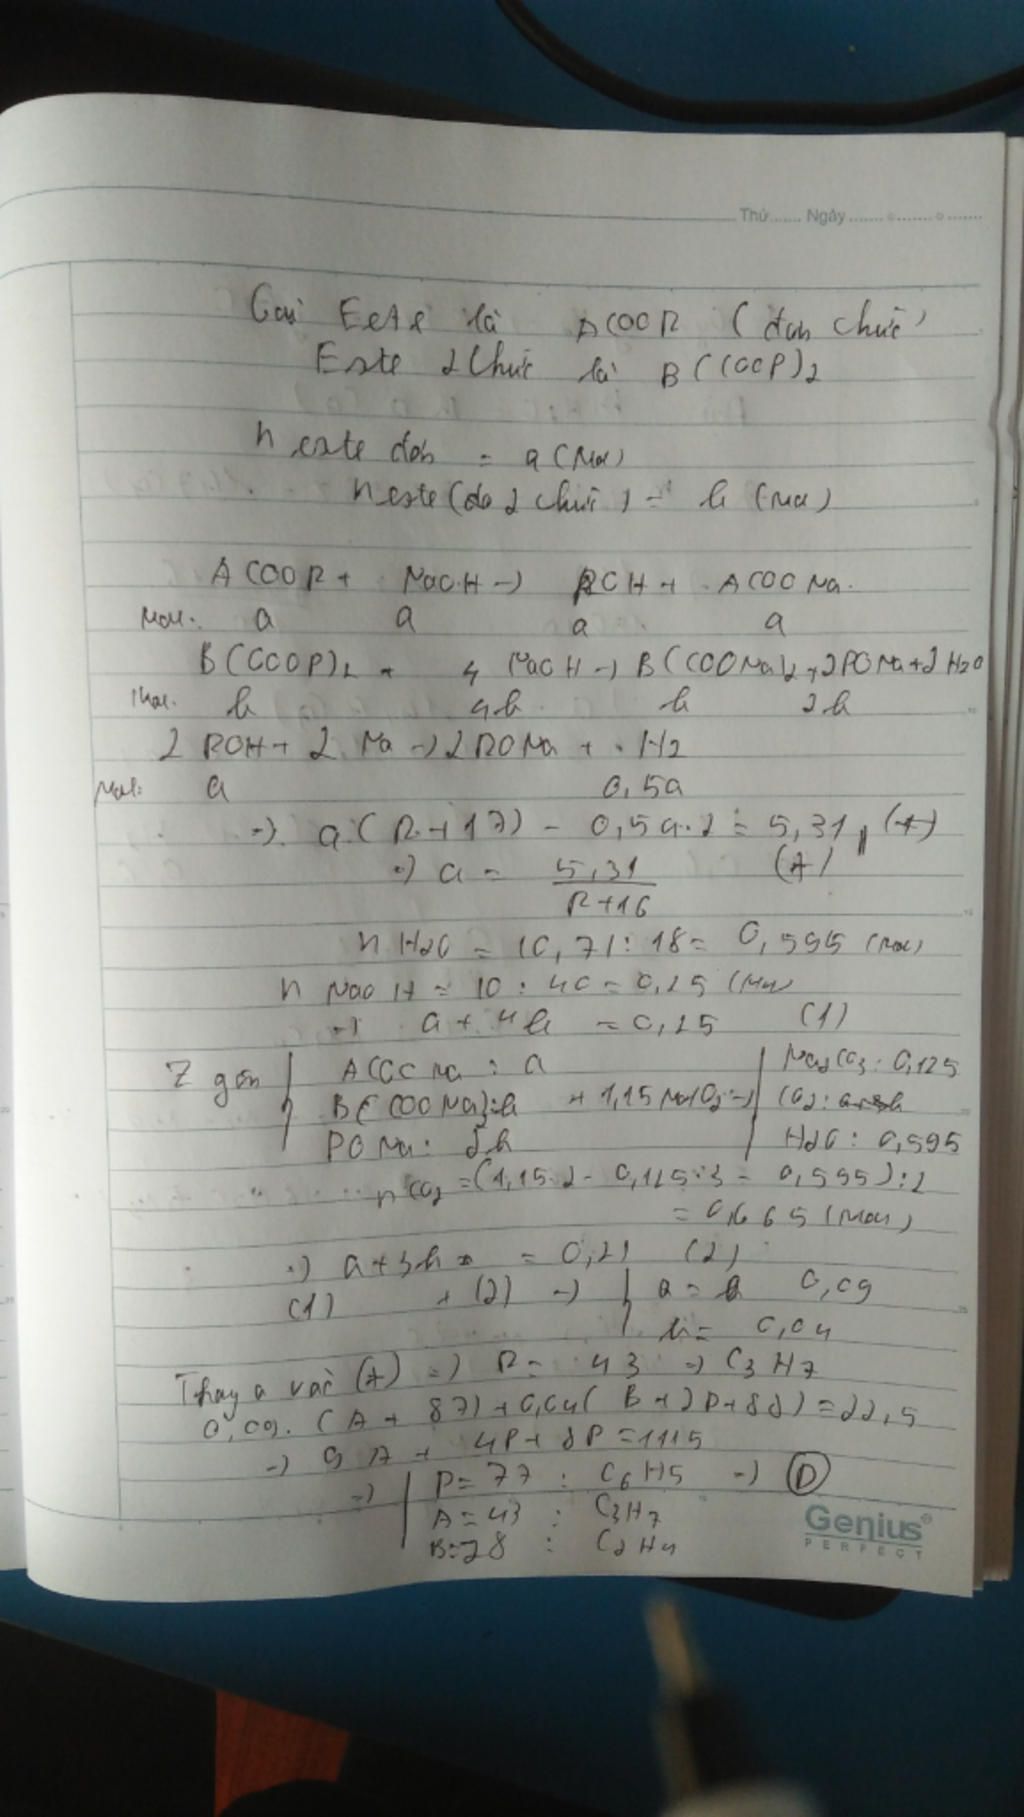 Thứ....... Ngày.......
Gọi Este là ACOOR (đơn chức)
Este 2 chức là B(COOP)2
n este đơn = a (mol)
n este (đa 2 chức) = b (mol)
ACOOR + NaOH -> ROH + ACOONa.
Mol: a a a a
B(COOP)2 + 4 NaOH -> B(COONa)2 + 2PONa + 2H2O
Mol. b 4b b 2b
2 ROH + 2 Na -> 2RONa + H2
Mol: a 0,5a
=> a(R+17) - 0,5a.2 = 5,31 (*)
=> a = 5,31 / R+16 (*)
n H2O = 10,71 : 18 = 0,595 (mol)
n NaOH = 10 : 40 = 0,25 (mol)
=> a + 4b = 0,25 (1)
Z gồm ACOONa : a Na2CO3 : 0,125
B(COONa)2 : b + 1,15 mol O2 -> CO2 :
PONa : 2b H2O : 0,595
n CO2 = (1,15.2 - 0,125.3 - 0,595) : 2
= 0,665 (mol)
=> a + 3b = 0,21 (2)
(1) + (2) => a = 0,09
b = 0,04
Thay a vào (*) => R = 43 => C3H7
0,09.(A + 87) + 0,04(B + 2P + 88) = 22,5
=> 9A + 4B + 8P = 1115
=> P = 77 : C6H5 => D
A = 43 : C3H7
B = 28 : C2H4
Genius
PERFECT